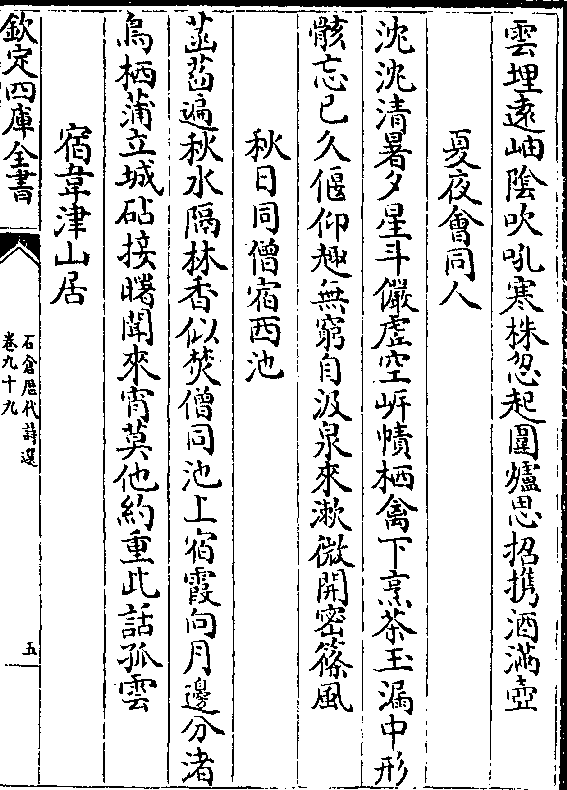 雲埋遠岫陰吹吼寒株忽起圍爐思招携酒滿壺
夏夜會同人
沈沈清暑夕星斗儼虚空岍幘栖禽下烹茶玉漏中形
骸忘已久偃仰趣無窮自汲泉來漱微開密篠風
秋日同僧宿西池
菡萏遍秋水隔林香似焚僧同池上宿霞向月邊分渚
鳥栖蒲立城砧接曙聞來宵莫他約重此話孤雲
宿韋津山居
欽定四庫全書
石倉歴代詩選
卷九十九
五